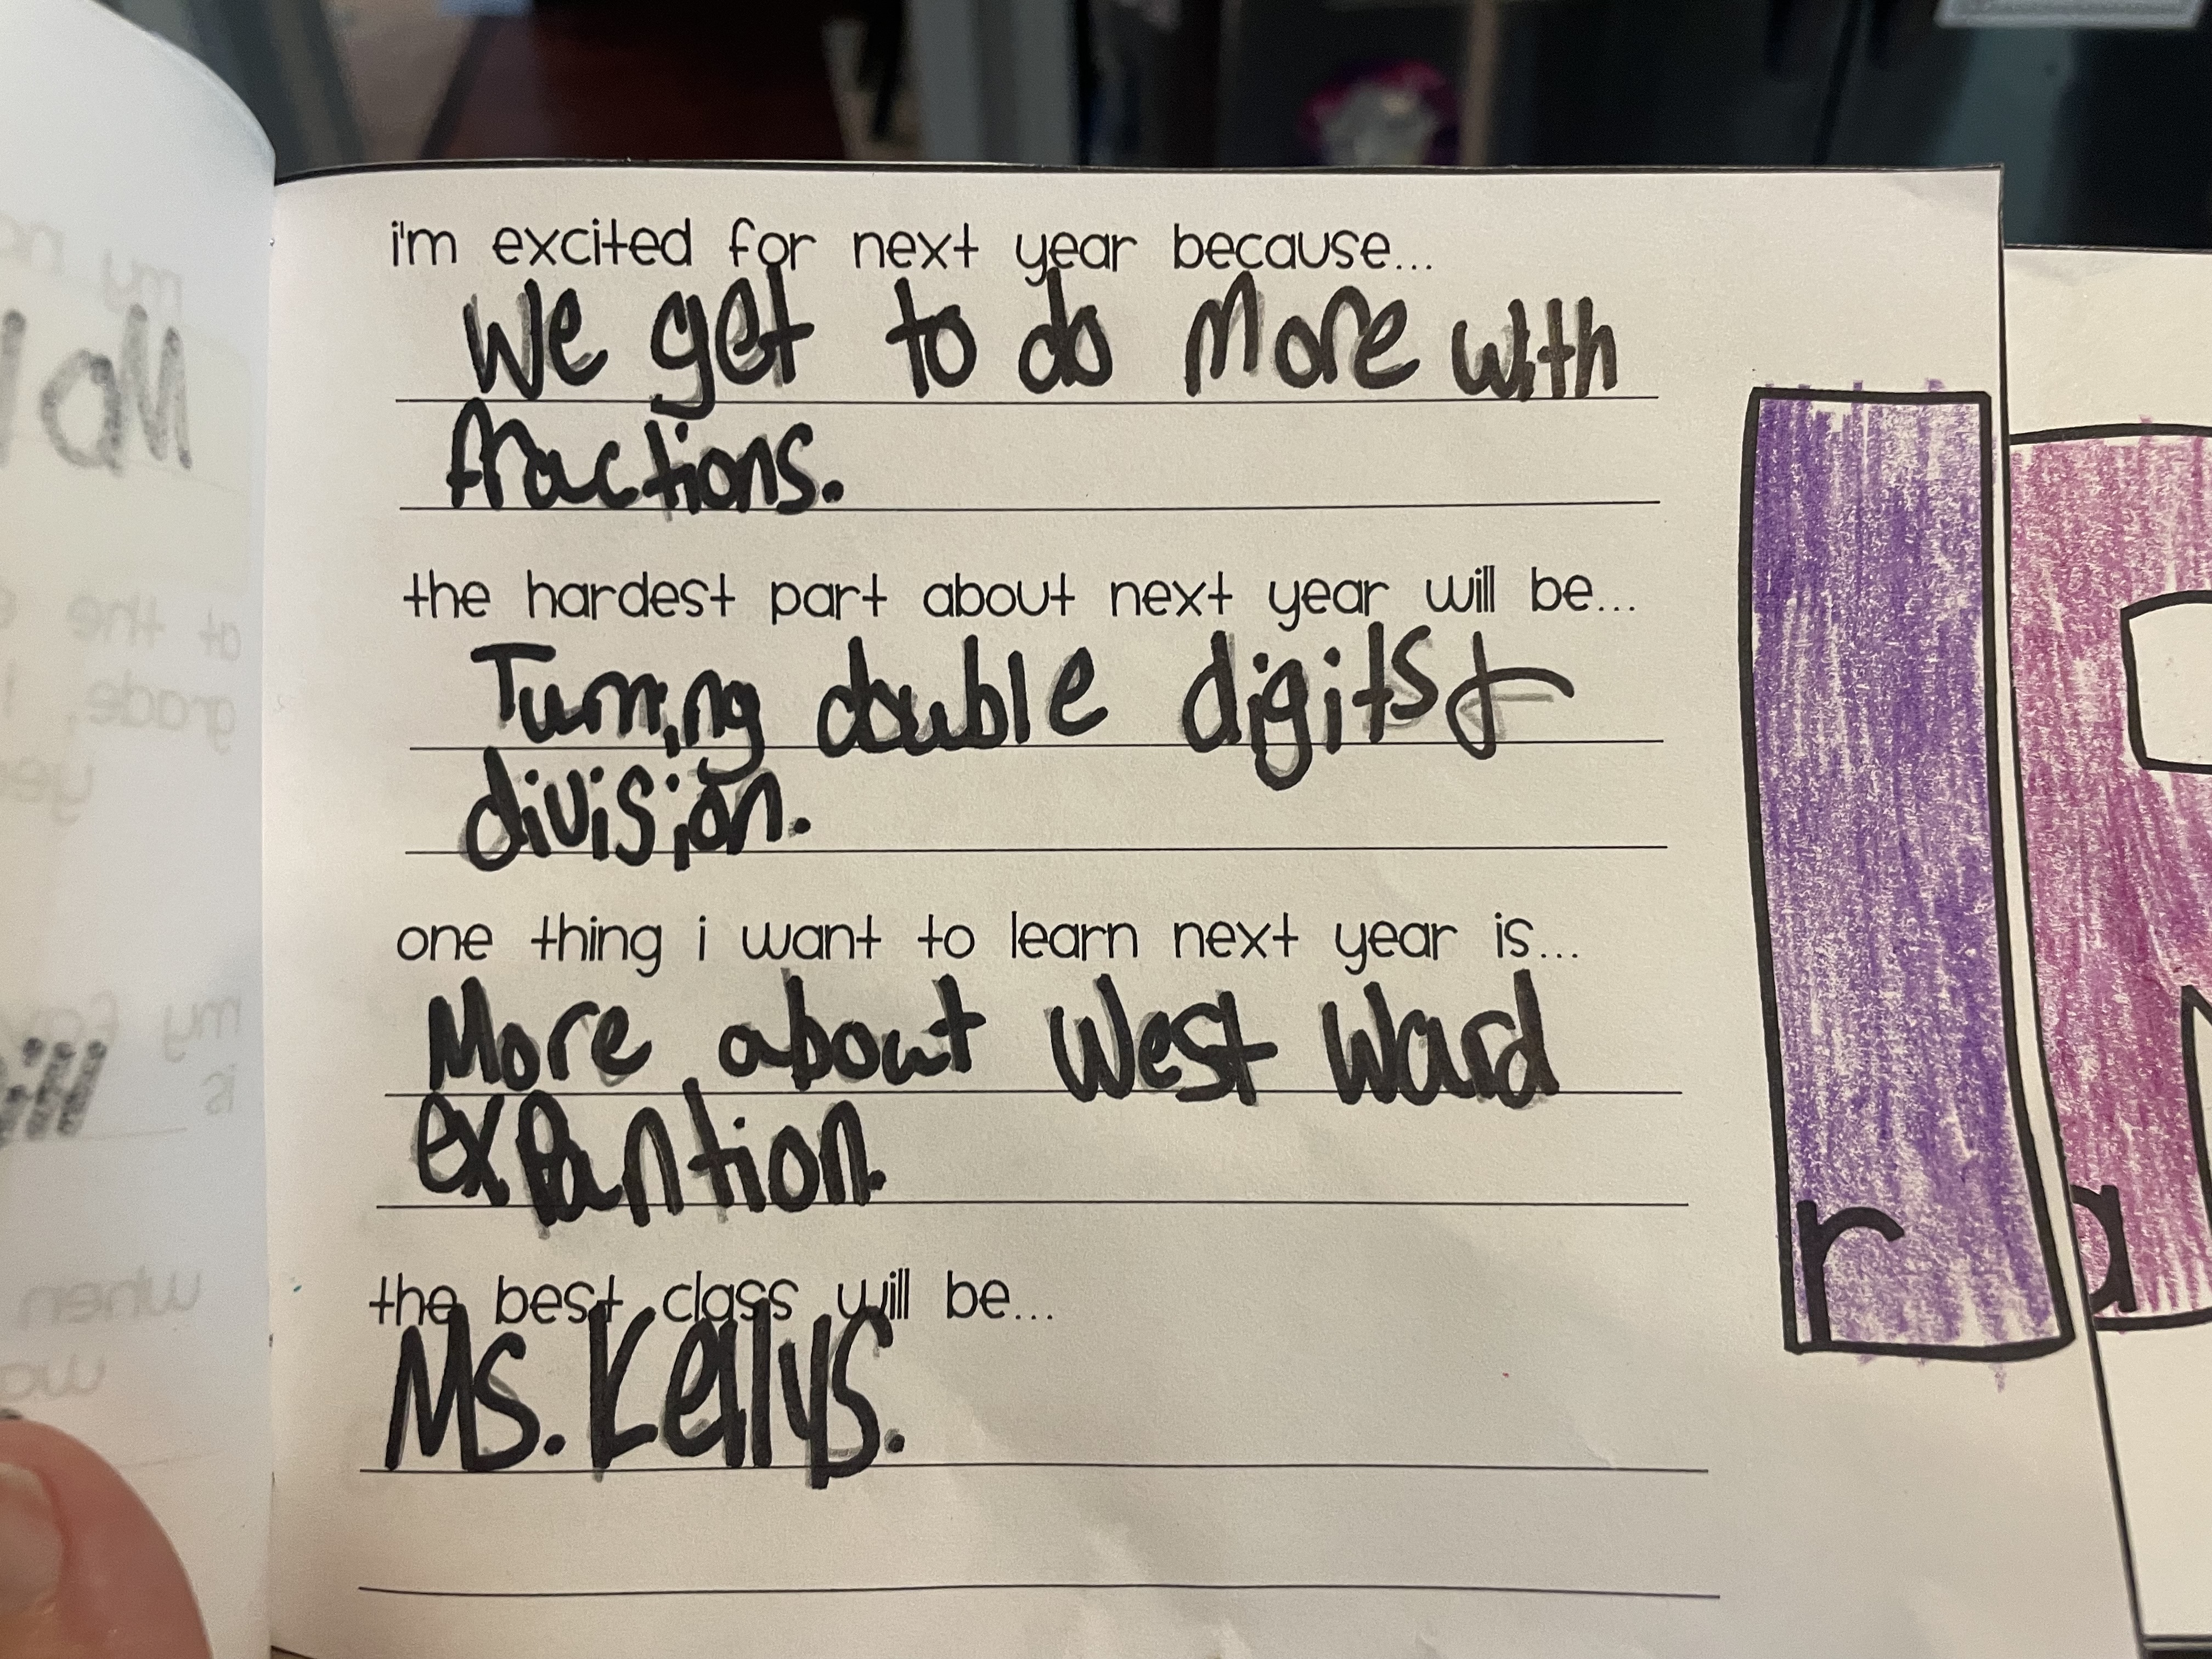 i'm excited for next year because...
We get to do More with
fractions.
the hardest part about next year will be...
Turning double digits &
division.
one thing i want to learn next year is...
More about West Ward
expantion.
the best class will be...
Ms. Kellys.
r
a